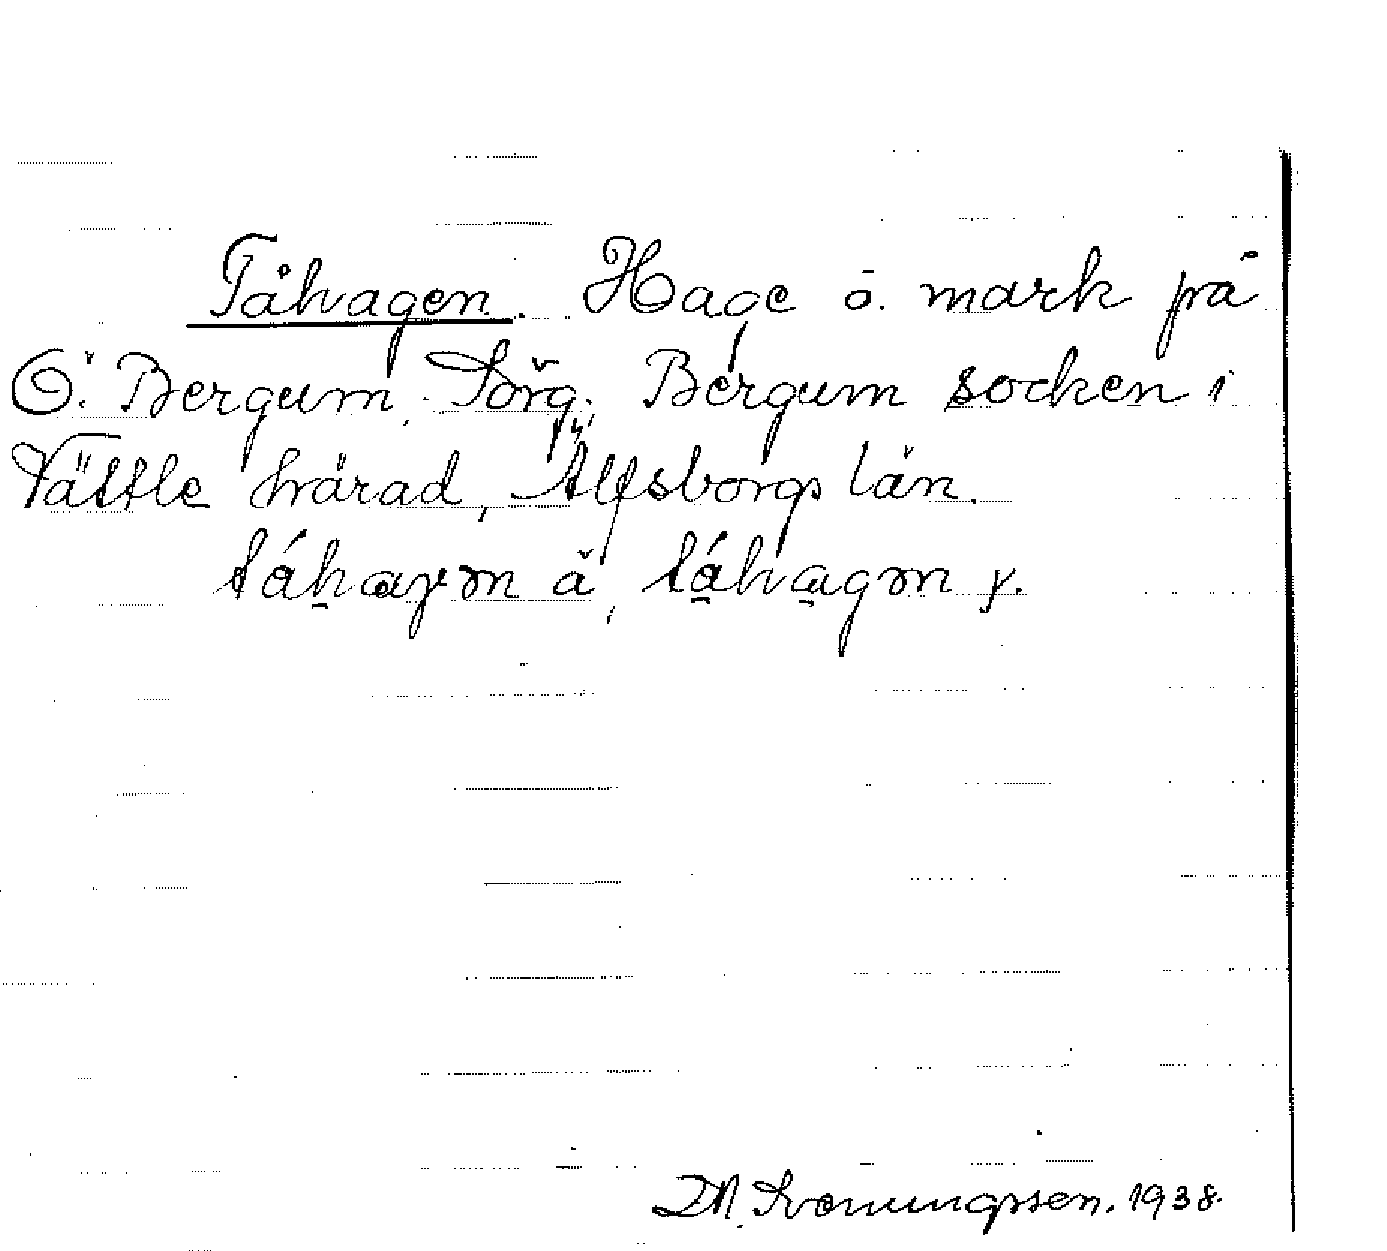 Tåhagen. Hage o. mark på
Ö. Bergum, Sörg. Bergum socken i
Vättle härad, Älfsborgs län.
å
1938